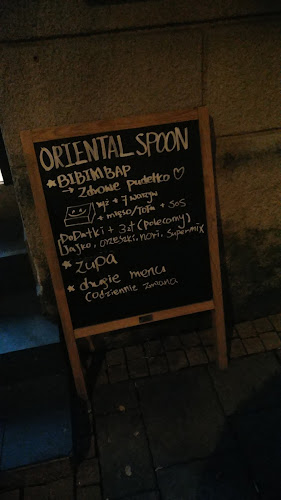 ORIENTAL SPOON
* BIBIMBAP
→ Zdrowe pudełko ♡
ryż + 7 warzyw
+ mięso/Tofu + sos
Dodatki + 3zł (polecamy)
Jajko, orzeszki, nori, Supermix
* zupa
* drugie menu
codziennie zmiana